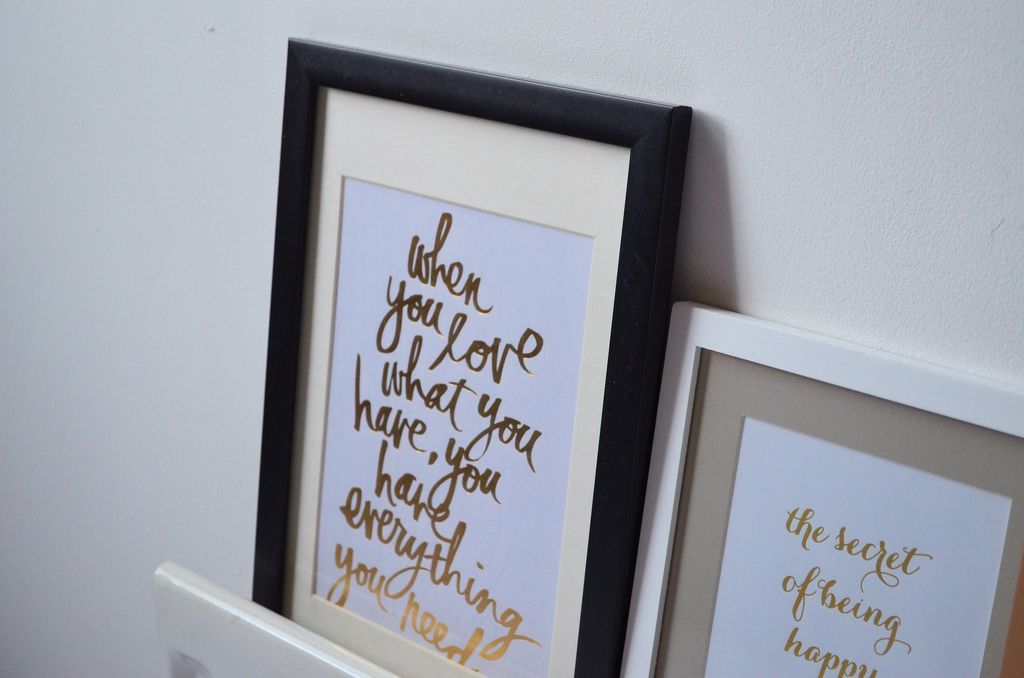 when
you love
what you
have, you
have
everything
you need
the secret
of being
happy